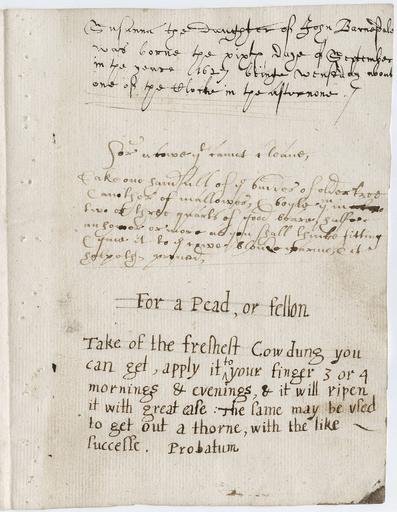 Susanna the Daughter of John Barnedale
was borne the sixth daye of September
in the yeare 1627 beinge wensday about
one of the Clocke in the afternone.
For a Cowe yt cannot cleane,
Take one handfull of ye buddes of eldertree
& another of mallowes, & boyle ym in
two or three quarts of good beare halfe
an hower or more as you shall thinke fitting
& give it to ye cowe blood warme, it
For a Pead, or fellon
Take of the freshest Cow dung you
can get, apply it to your finger 3 or 4
mornings & evenings, & it will ripen
it with great ease: The same may be vsed
to get out a thorne, with the like
successe. Probatum